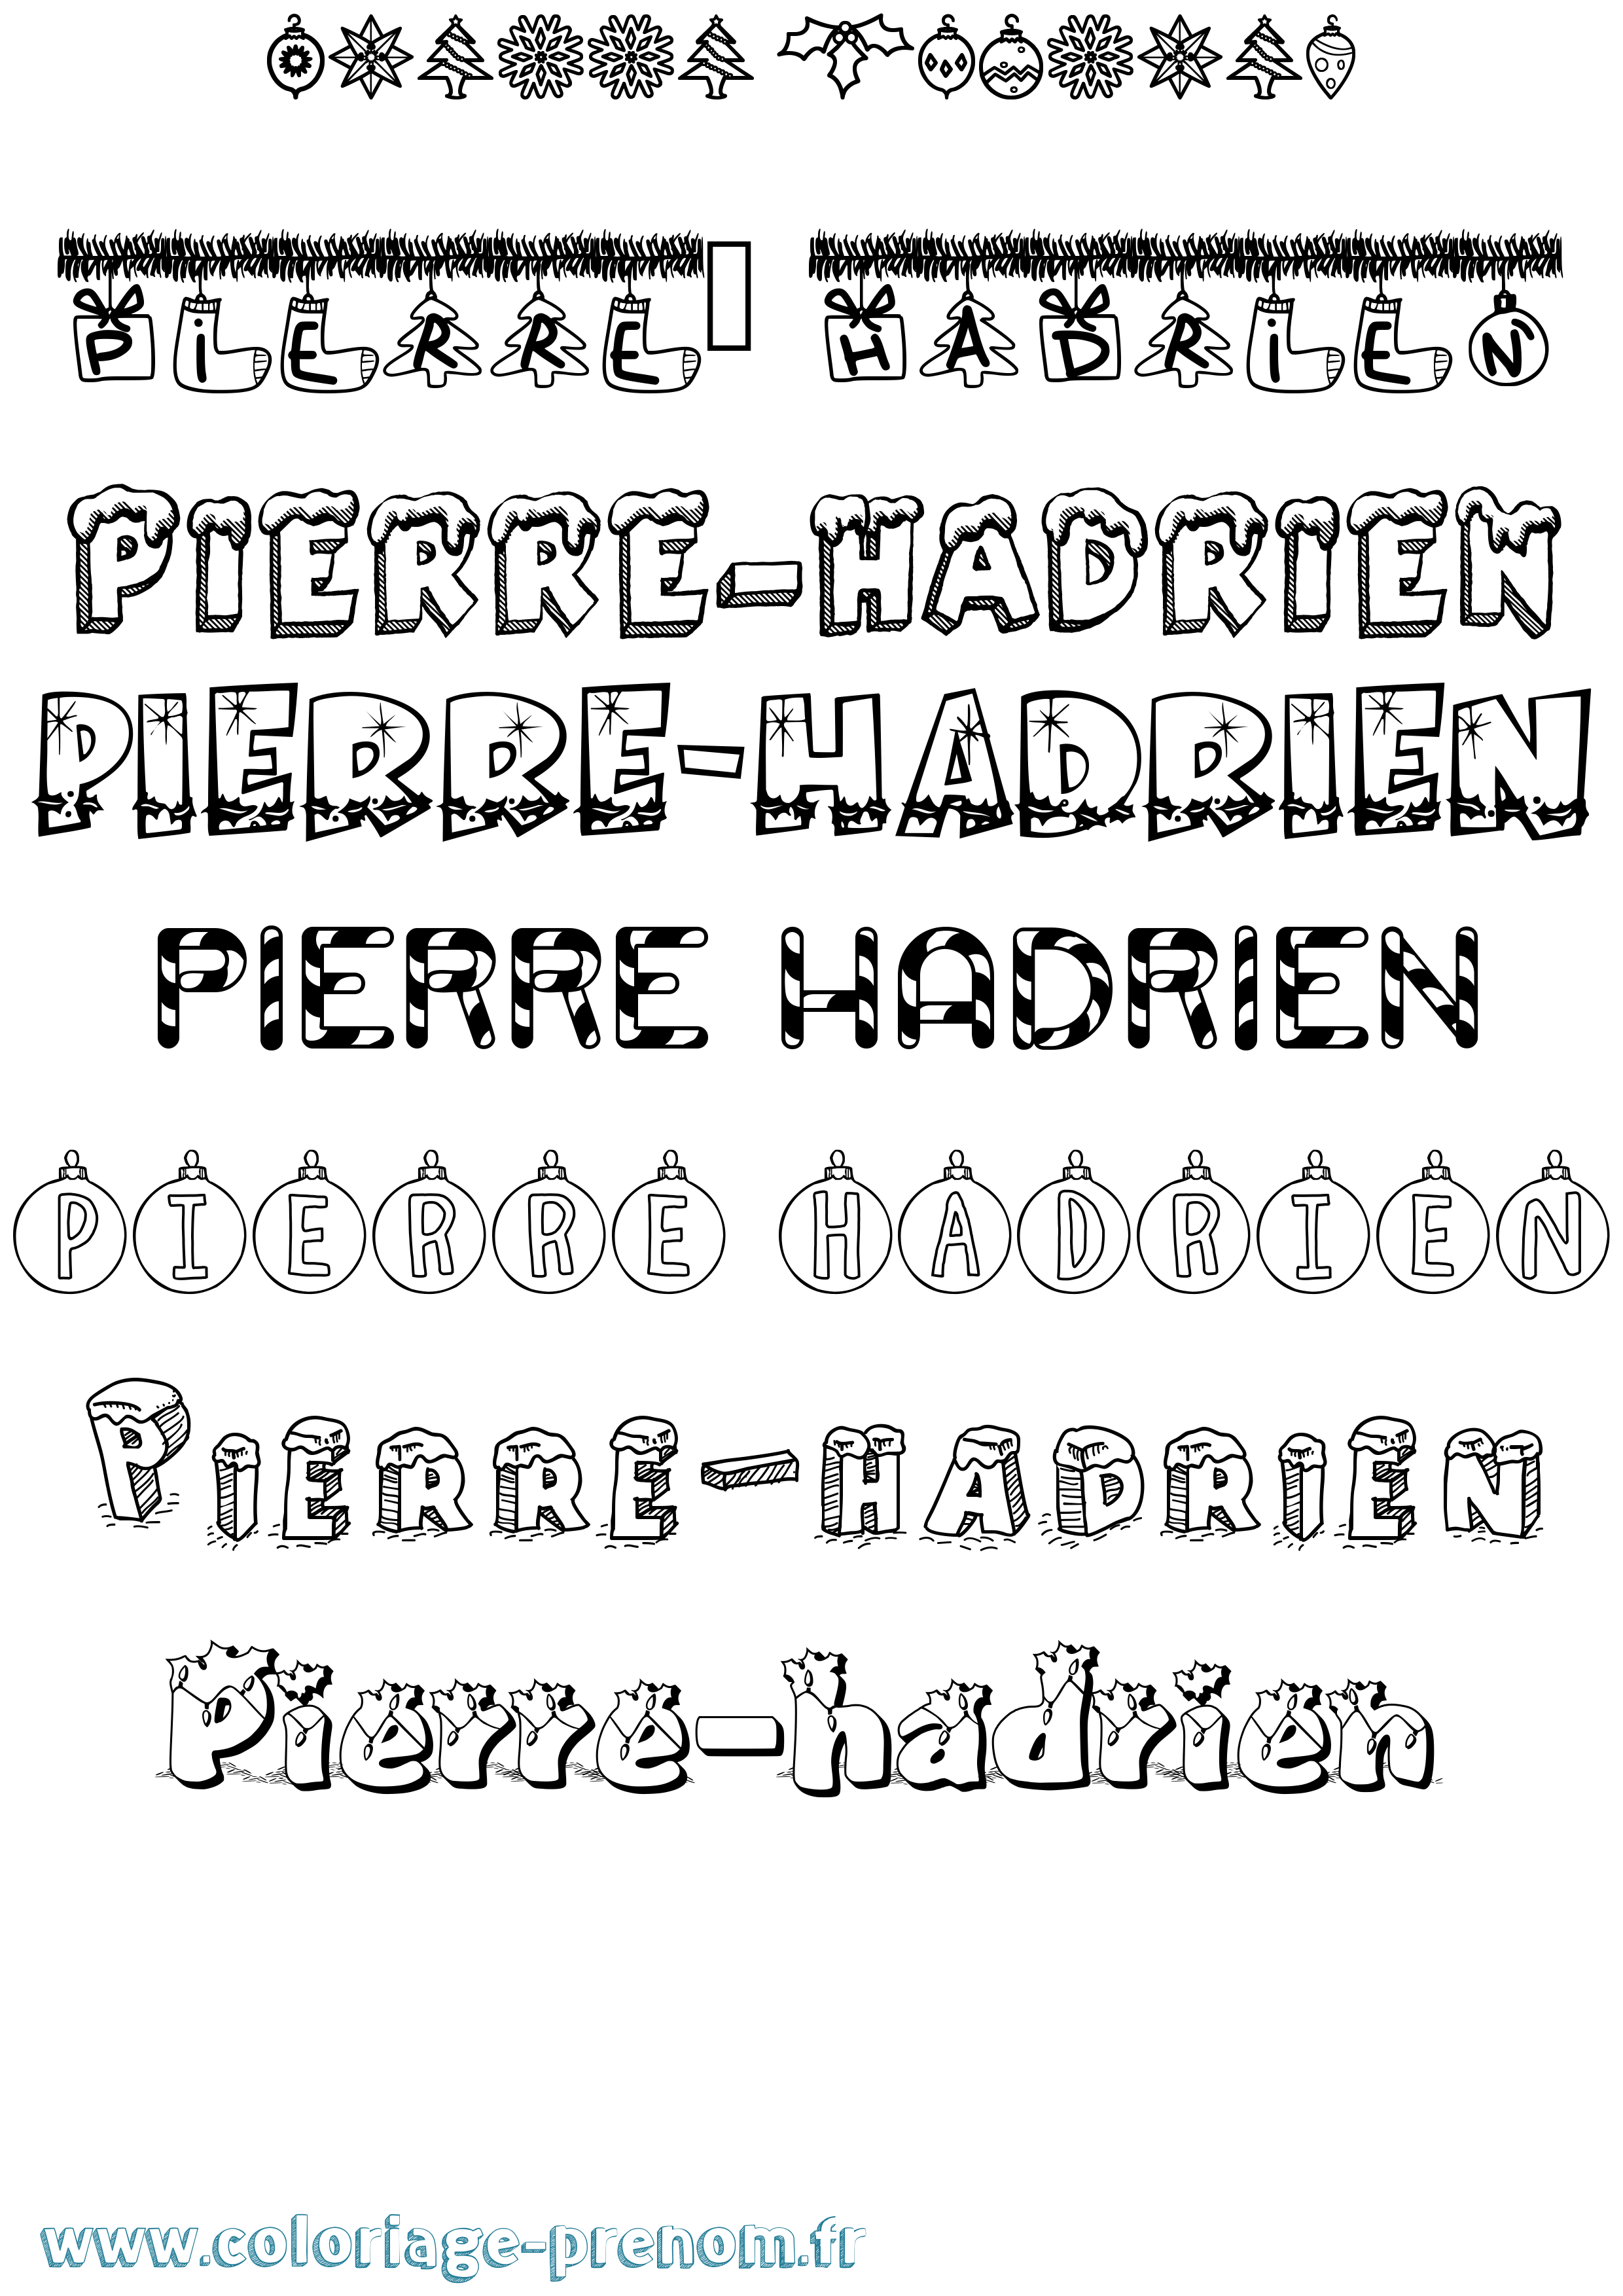 PiERRE HADRiEN
PIERRE-HADRIEN
PIERRE-HADRIEN
PIERRE HADRIEN
PIERRE HADRIEN
PIERRE-HADRIEN
Pierre-hadrien
www.coloriage-prenom.fr